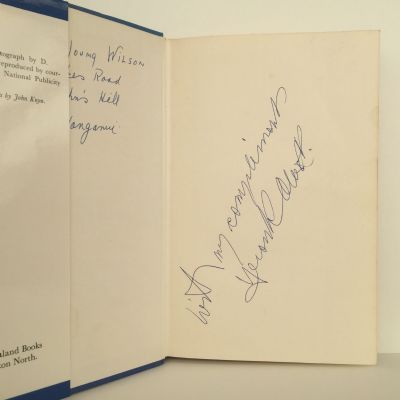 tograph by D.
reproduced by cour-
National Publicity
by John Knox.
land Books
on North.
Young Wilson
Road
Hill
anganui
With my compliments
Frank